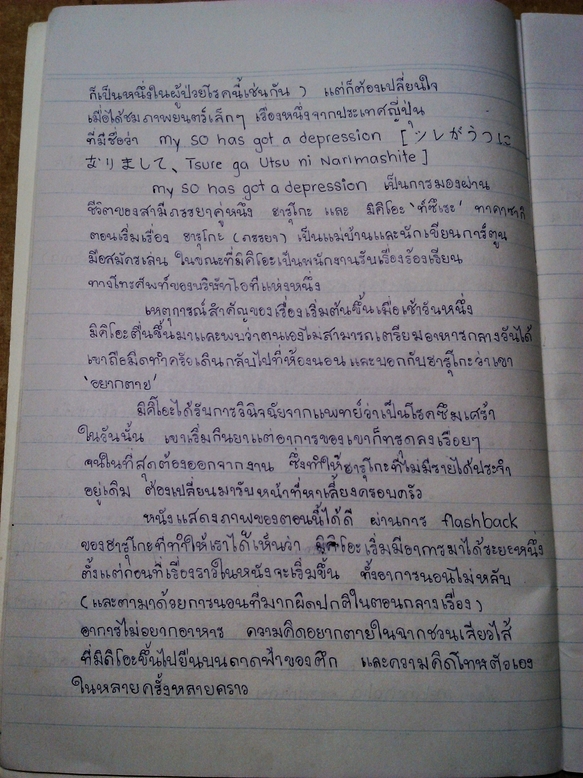 ก็เป็นหนึ่งในผู้ป่วยโรคนี้เช่นกัน ) แต่ก็ต้องเปลี่ยนใจ
เมื่อได้ชมภาพยนตร์เล็กๆ เรื่องหนึ่งจากประเทศญี่ปุ่น
ที่มีชื่อว่า my SO has got a depression [ツレがうつに
なりまして、Tsure ga Utsu ni Narimashite]
my SO has got a depression เป็นการมองผ่าน
ชีวิตของสามีภรรยาคู่หนึ่ง ฮารุโกะ และ มิคิโอะ 'ท์ซึเระ' ทาคาซากิ
ตอนเริ่มเรื่อง ฮารุโกะ (ภรรยา) เป็นแม่บ้านและนักเขียนการ์ตูน
มือสมัครเล่น ในขณะที่มิคิโอะเป็นพนักงานรับเรื่องร้องเรียน
ทางโทรศัพท์ของบริษัทไอทีแห่งหนึ่ง
เหตุการณ์สำคัญของเรื่องเริ่มต้นขึ้นเมื่อเช้าวันหนึ่ง
มิคิโอะตื่นขึ้นมาและพบว่าตนเองไม่สามารถเตรียมอาหารกลางวันได้
เขาถือมีดทำครัวเดินกลับไปที่ห้องนอน และบอกกับฮารุโกะว่าเขา
'อยากตาย'
มิคิโอะได้รับการวินิจฉัยจากแพทย์ว่าเป็นโรคซึมเศร้า
ในวันนั้น เขาเริ่มกินยาแต่อาการของเขาก็ทรุดลงเรื่อยๆ
จนในที่สุดต้องออกจากงาน ซึ่งทำให้ฮารุโกะที่ไม่มีรายได้ประจำ
อยู่เดิม ต้องเปลี่ยนมารับหน้าที่หาเลี้ยงครอบครัว
หนังแสดงภาพของตอนนี้ได้ดี ผ่านการ flashback
ของฮารุโกะที่ทำให้เราได้เห็นว่า มิคิโอะเริ่มมีอาการมาได้ระยะหนึ่ง
ตั้งแต่ก่อนที่เรื่องราวในหนังจะเริ่มขึ้น ทั้งอาการนอนไม่หลับ
(และตามมาด้วยการนอนที่มากผิดปกติในตอนกลางเรื่อง)
อาการไม่อยากอาหาร ความคิดอยากตายในฉากชวนเสียวไส้
ที่มิคิโอะขึ้นไปยืนบนดาดฟ้าของตึก และความคิดโทษตัวเอง
ในหลายครั้งหลายคราว